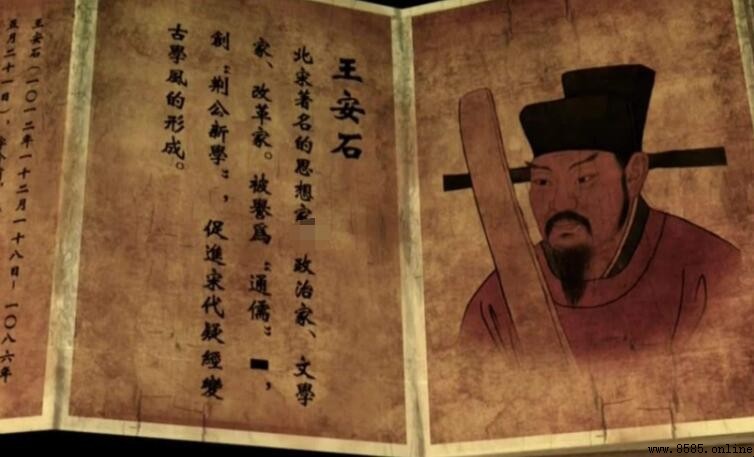 王安石
北宋著名的思想家 政治家、文學
家、改革家。被譽爲“通儒”，
創“荆公新學”，促進宋代疑經變
古學風的形成。
王安石（一〇一二年一十二月一十八日－一〇八六年
五月二十一日），
www.8585.online